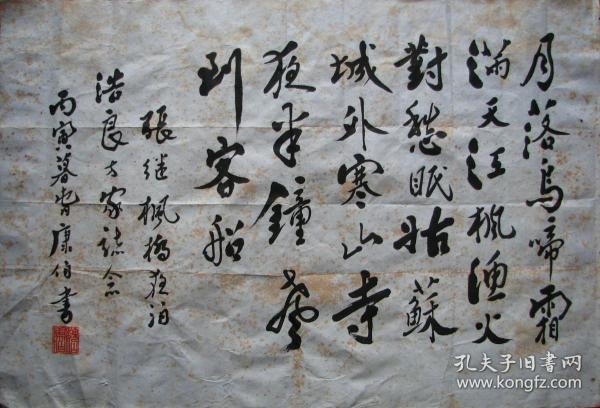 月落烏啼霜
滿天江楓漁火
對愁眠姑蘇
城外寒山寺
夜半鐘聲
到客船
張继楓橋夜泊
浩良方家誌念
丙寅暮春康伯書
孔夫子旧书网
www.kongfz.com